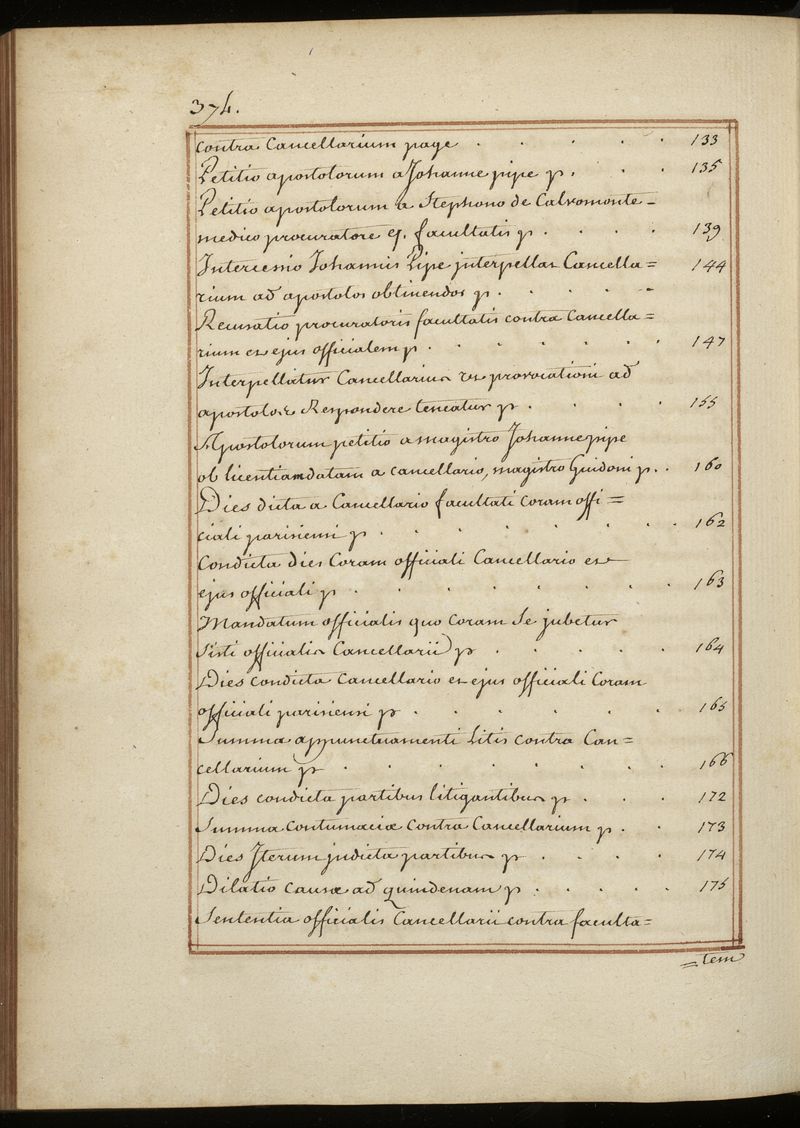 374.
contra Cancellarium page . . . . . 133
Petitio apostolorum a Johanne pipe p. . . 135
Petitio apostolorum a Stephono de Calvomonte -
medico procuratore ej. facultatis p . . . . 139
Intercessio Johannis Pipe interpellans Cancella= 144
rium ad apostolos obtinendos p. . . . . -
Recusatio procuratoris facultatis contra Cancella=
rium et ejus officialem p . . . . . . 147
Interpellatur Cancellarius ut provocationi ad
apostolos Respondere teneatur p . . . . 155
Apostolorum petitio a magistro Johanne pipe
ob licentiam datam a cancellario, magistro Guidoni p. . 160
Dies dicta a Cancellario facultati coram offi=
ciali parisiensi p . . . . . . . . 162
Condicta dies Coram officiali Cancellario et
ejus officiali p . . . . . . . . 163
Mandatum officialis quo Coram Se jubetur
Sisti officialis Cancellarii p . . . . . 164
Dies condicta Cancellario et ejus officiali Coram
officiali parisiensi p . . . . . . . 165
Summa appunctuamenti Litis contra Can=
cellarium p . . . . . . . . 166
Dies condicta partibus litigantibus p . . . 172
Summa Contumaciæ Contra Cancellarium p . . 173
Dies Iterum judicta partibus p . . . . 174
Dilatio Causæ ad quindenam p . . . . . 175
Sententia officialis Cancellarii contra faculta=
=tem